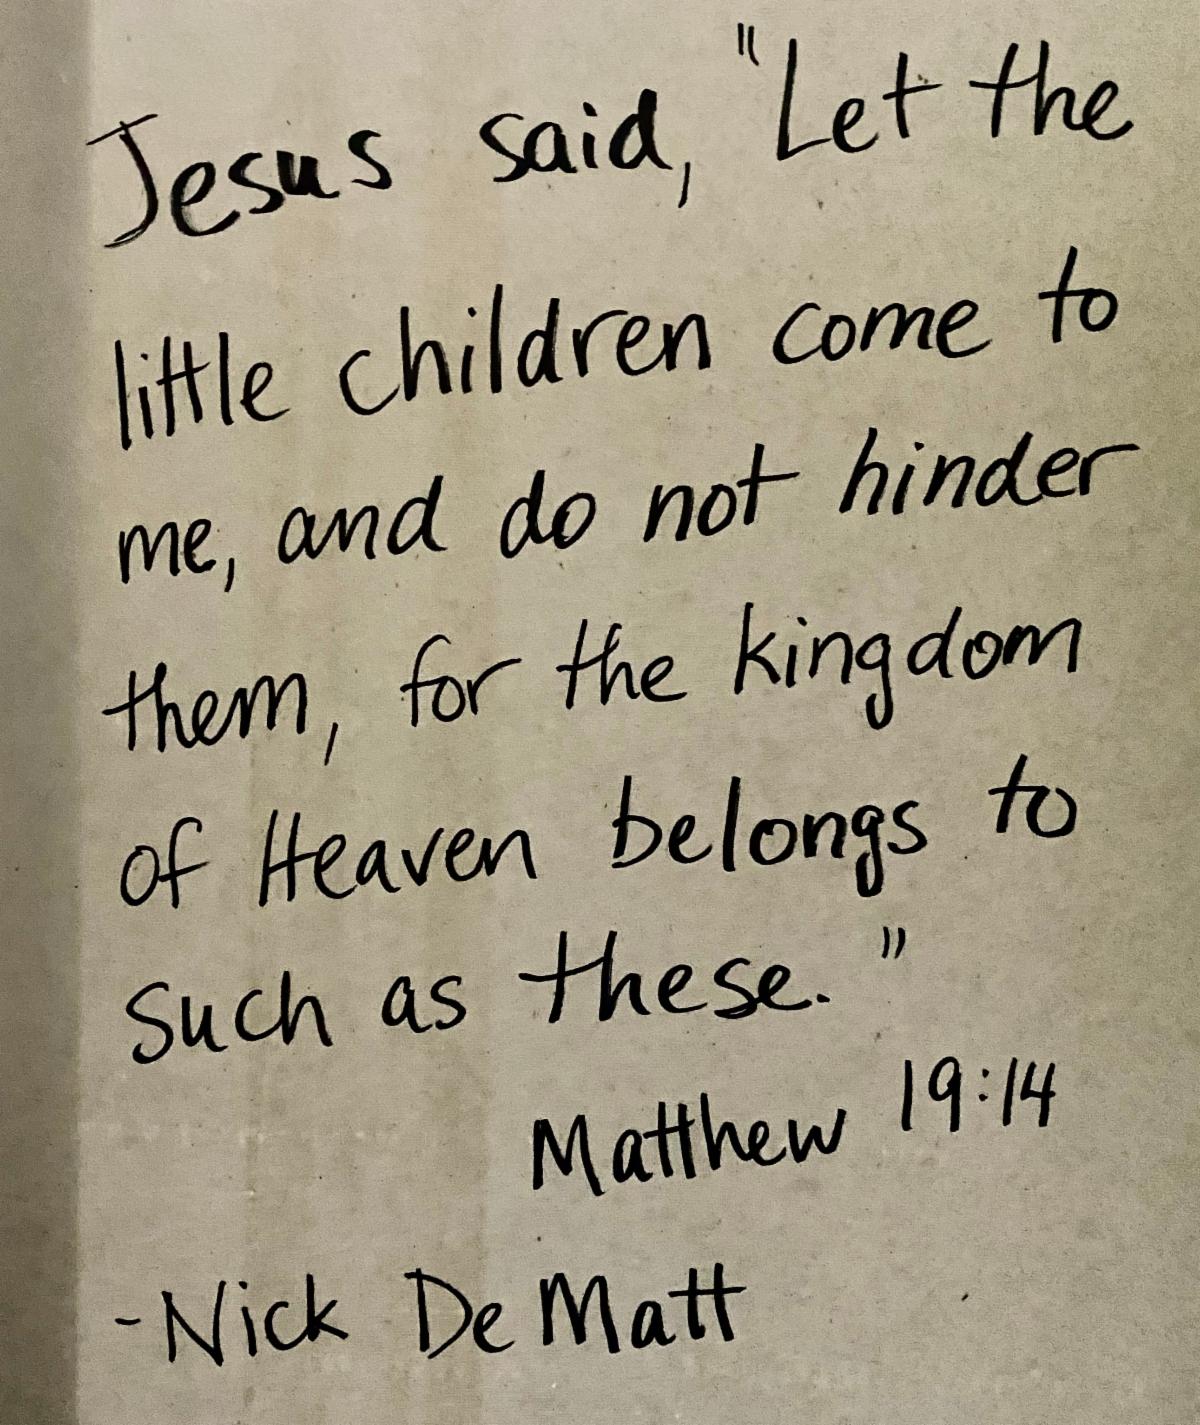 Jesus said, "Let the
little children come to
me, and do not hinder
them, for the kingdom
of Heaven belongs to
such as these."
Matthew 19:14
-Nick DeMatt